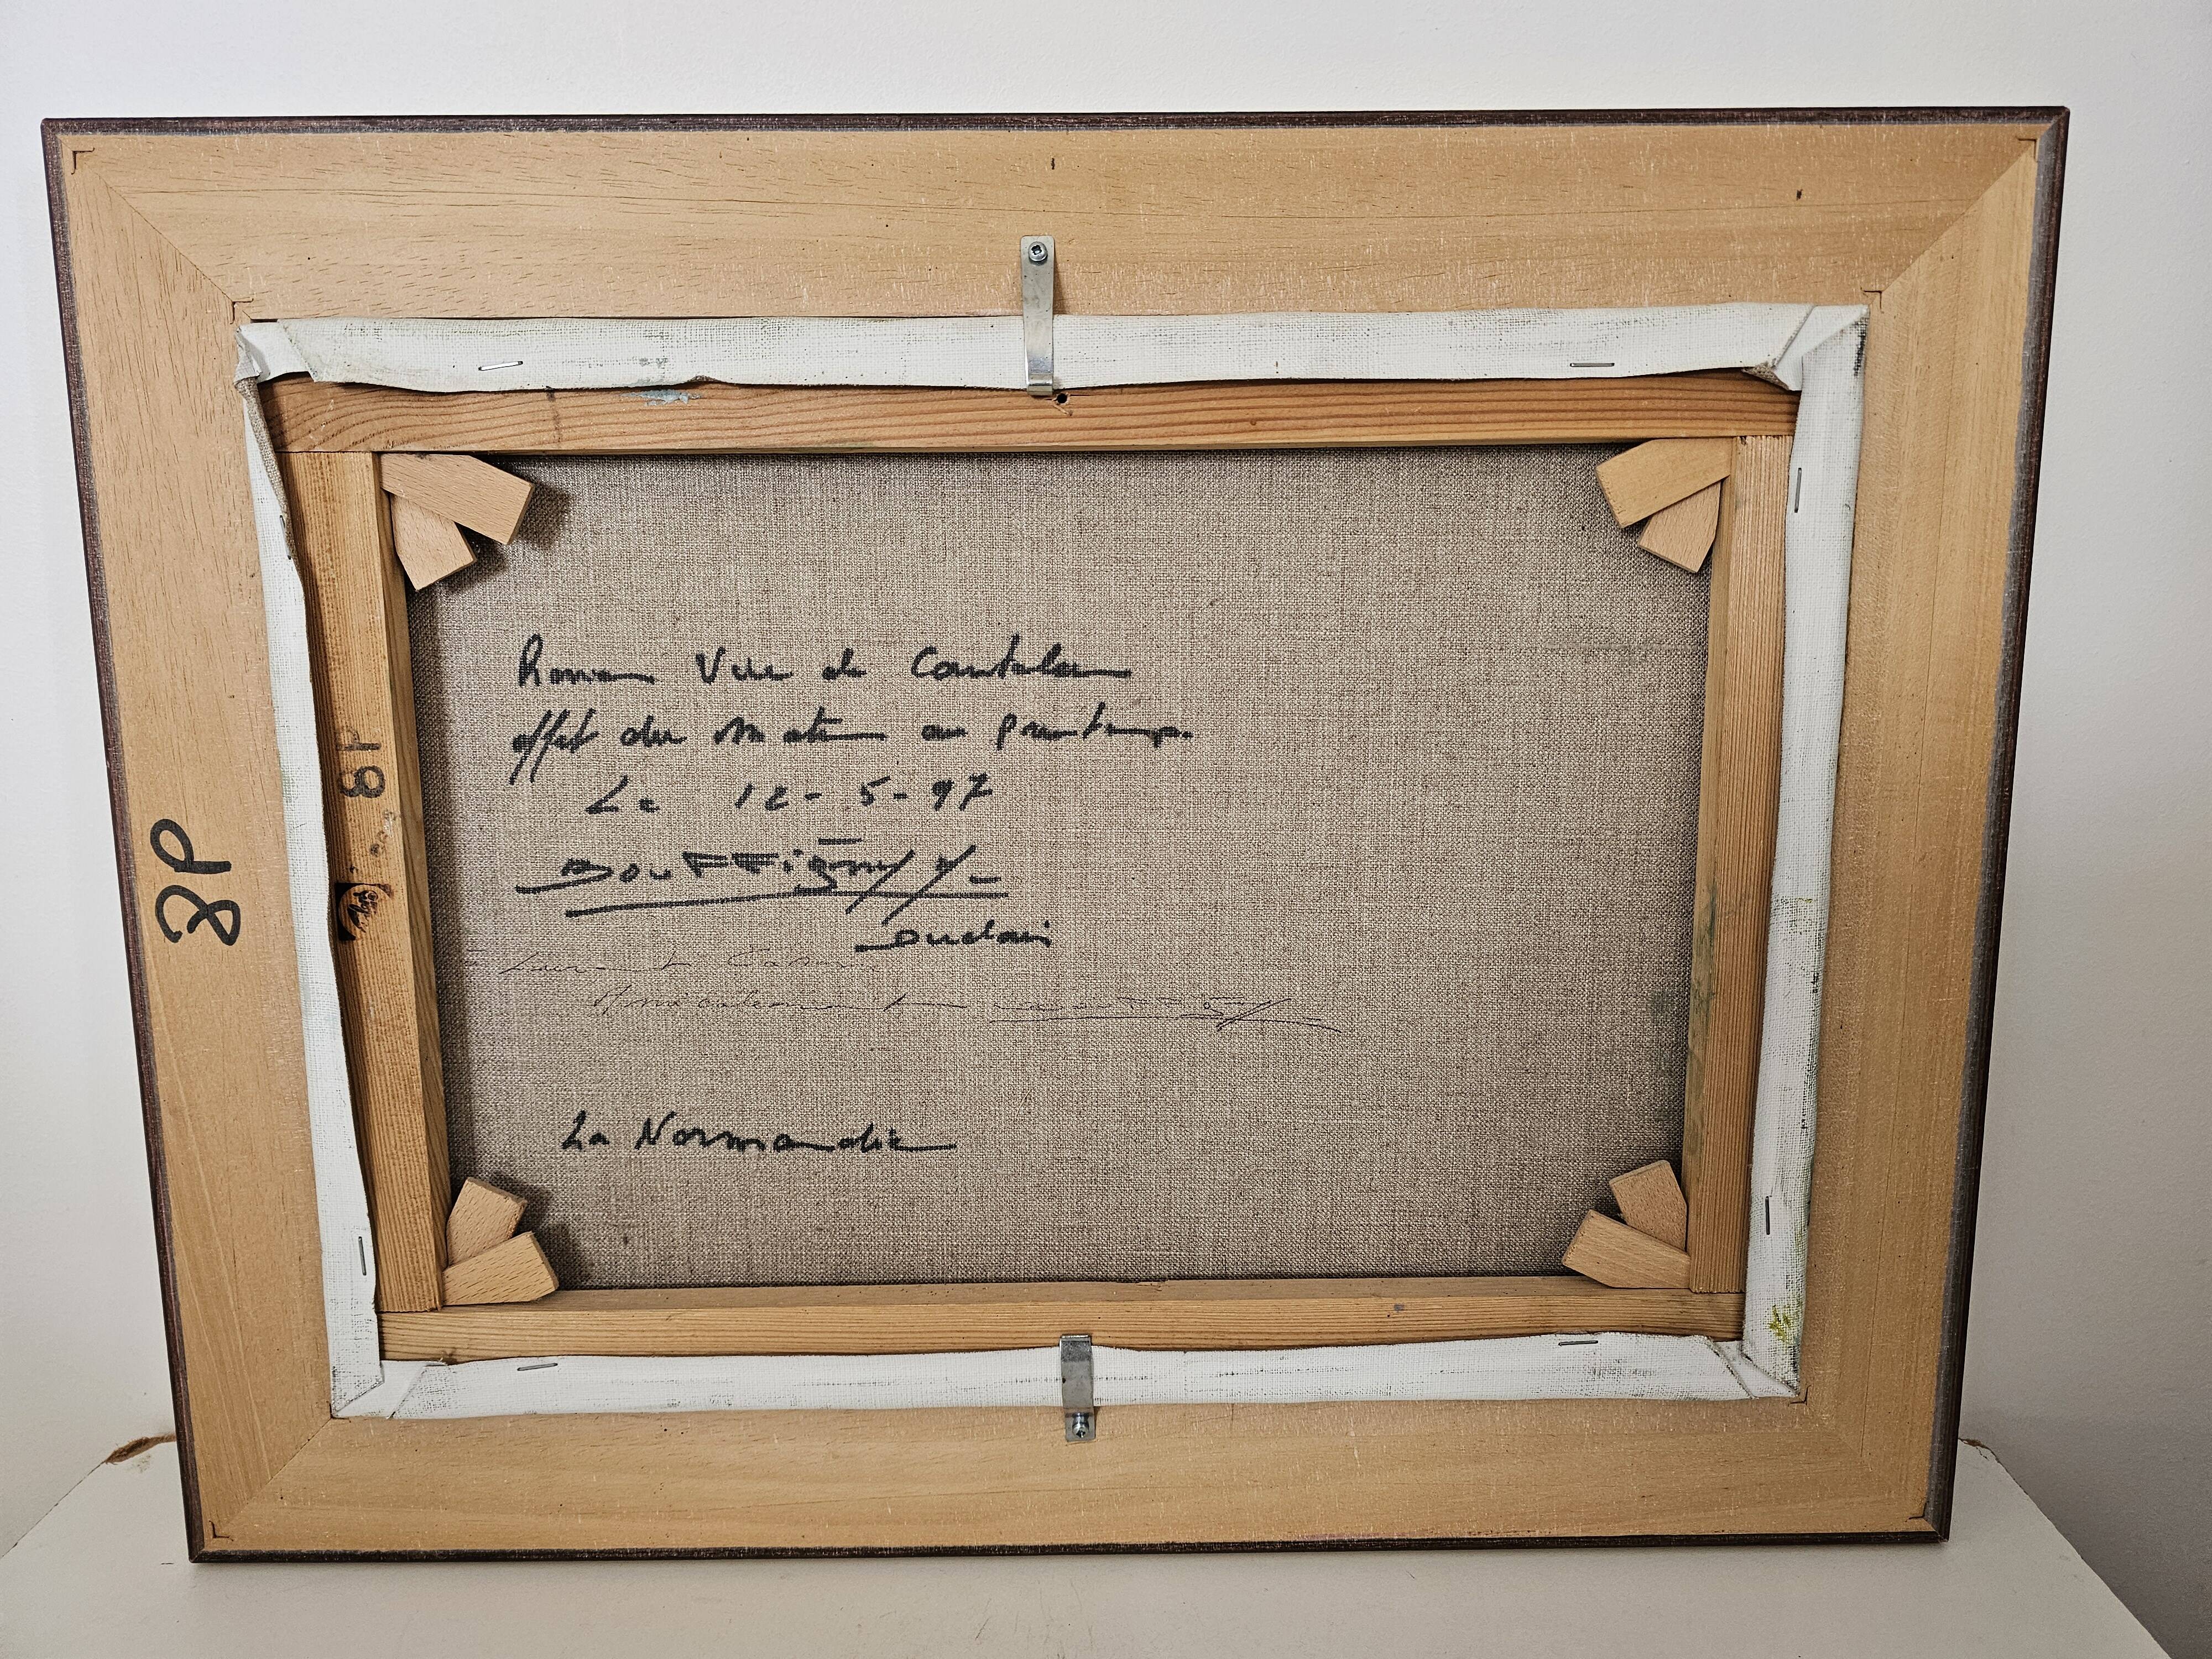 Rouen Vue de Canteleu
effet du Matin au printemps.
Le 12-5-97
Bouttigny y-
Duclair
Amicalement
La Normandie
8P
8P